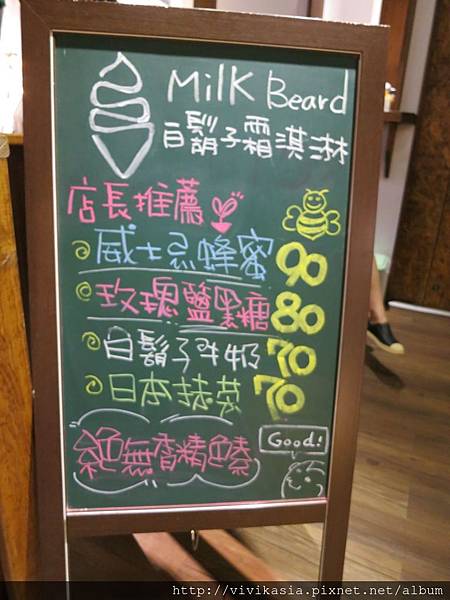 Milk Beard
白鬍子霜淇淋
店長推薦
威士忌蜂蜜 90
玫瑰鹽黑糖 80
白鬍子牛奶 70
日本抹茶 70
絕無香精色素
Good!
http://vivikasia.pixnet.net/album